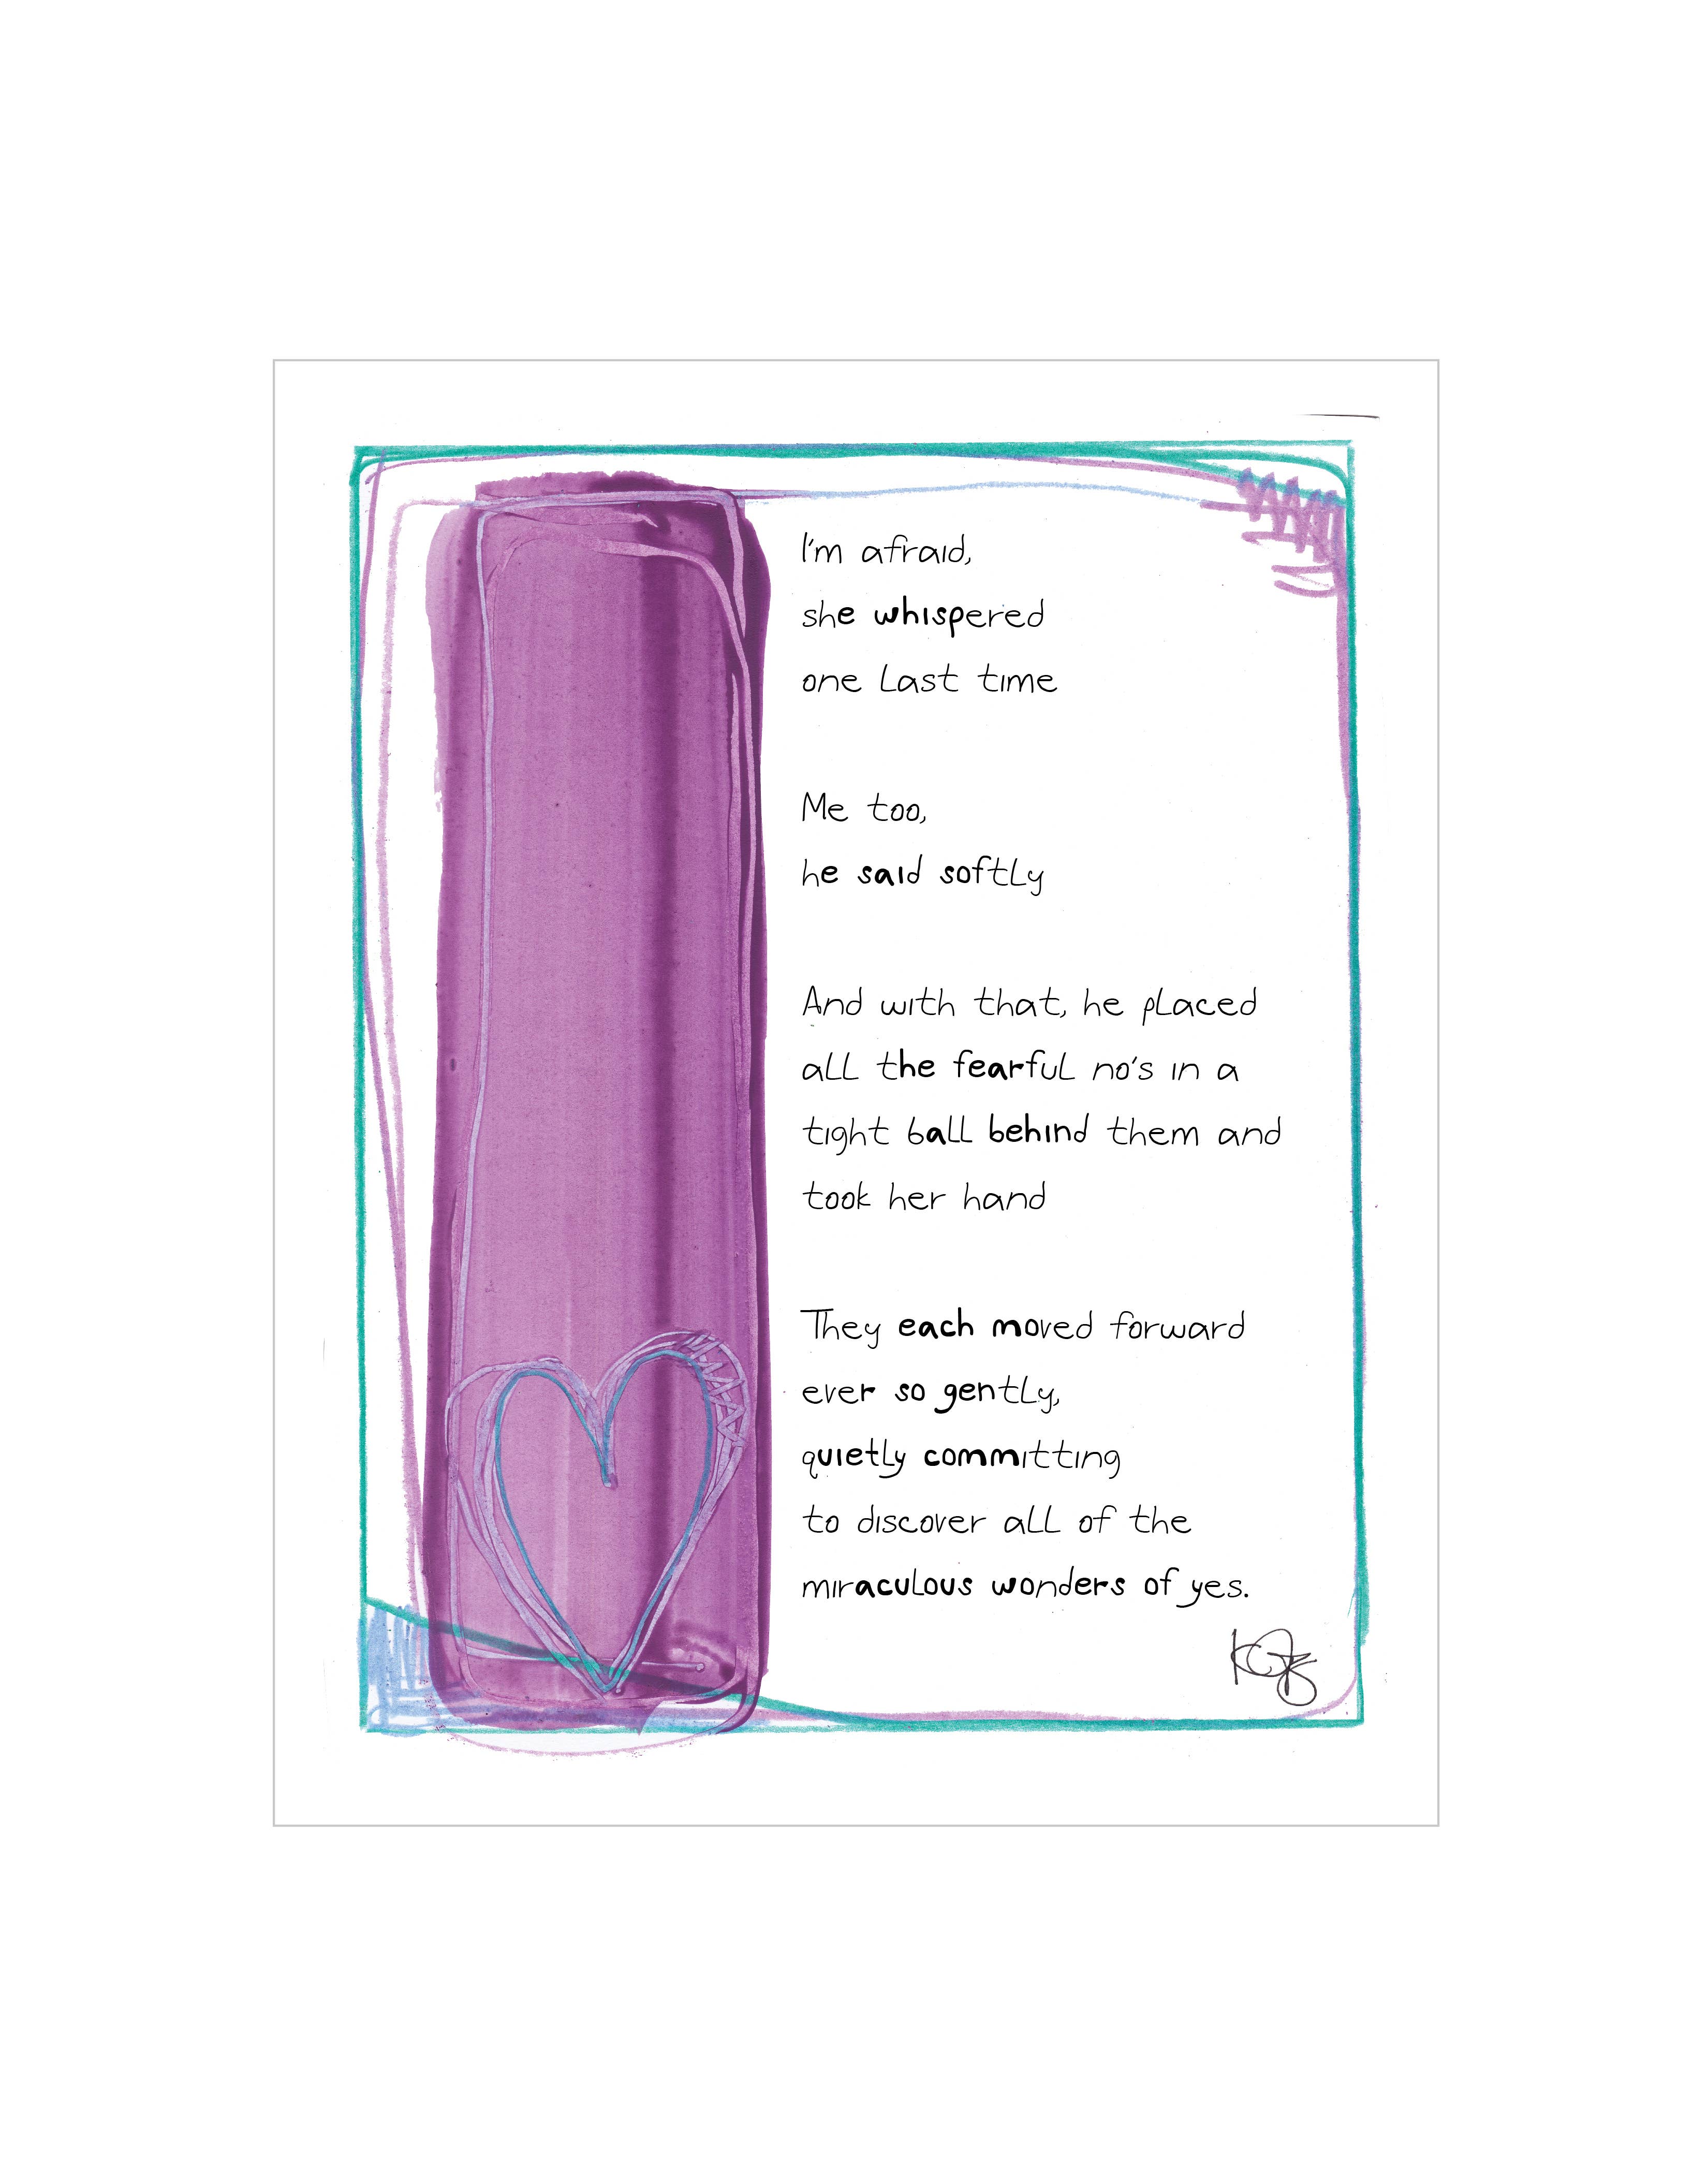 I'm afraid,
she whispered
one last time
Me too,
he said softly
And with that, he placed
all the fearful no's in a
tight ball behind them and
took her hand
They each moved forward
ever so gently,
quietly committing
to discover all of the
miraculous wonders of yes.